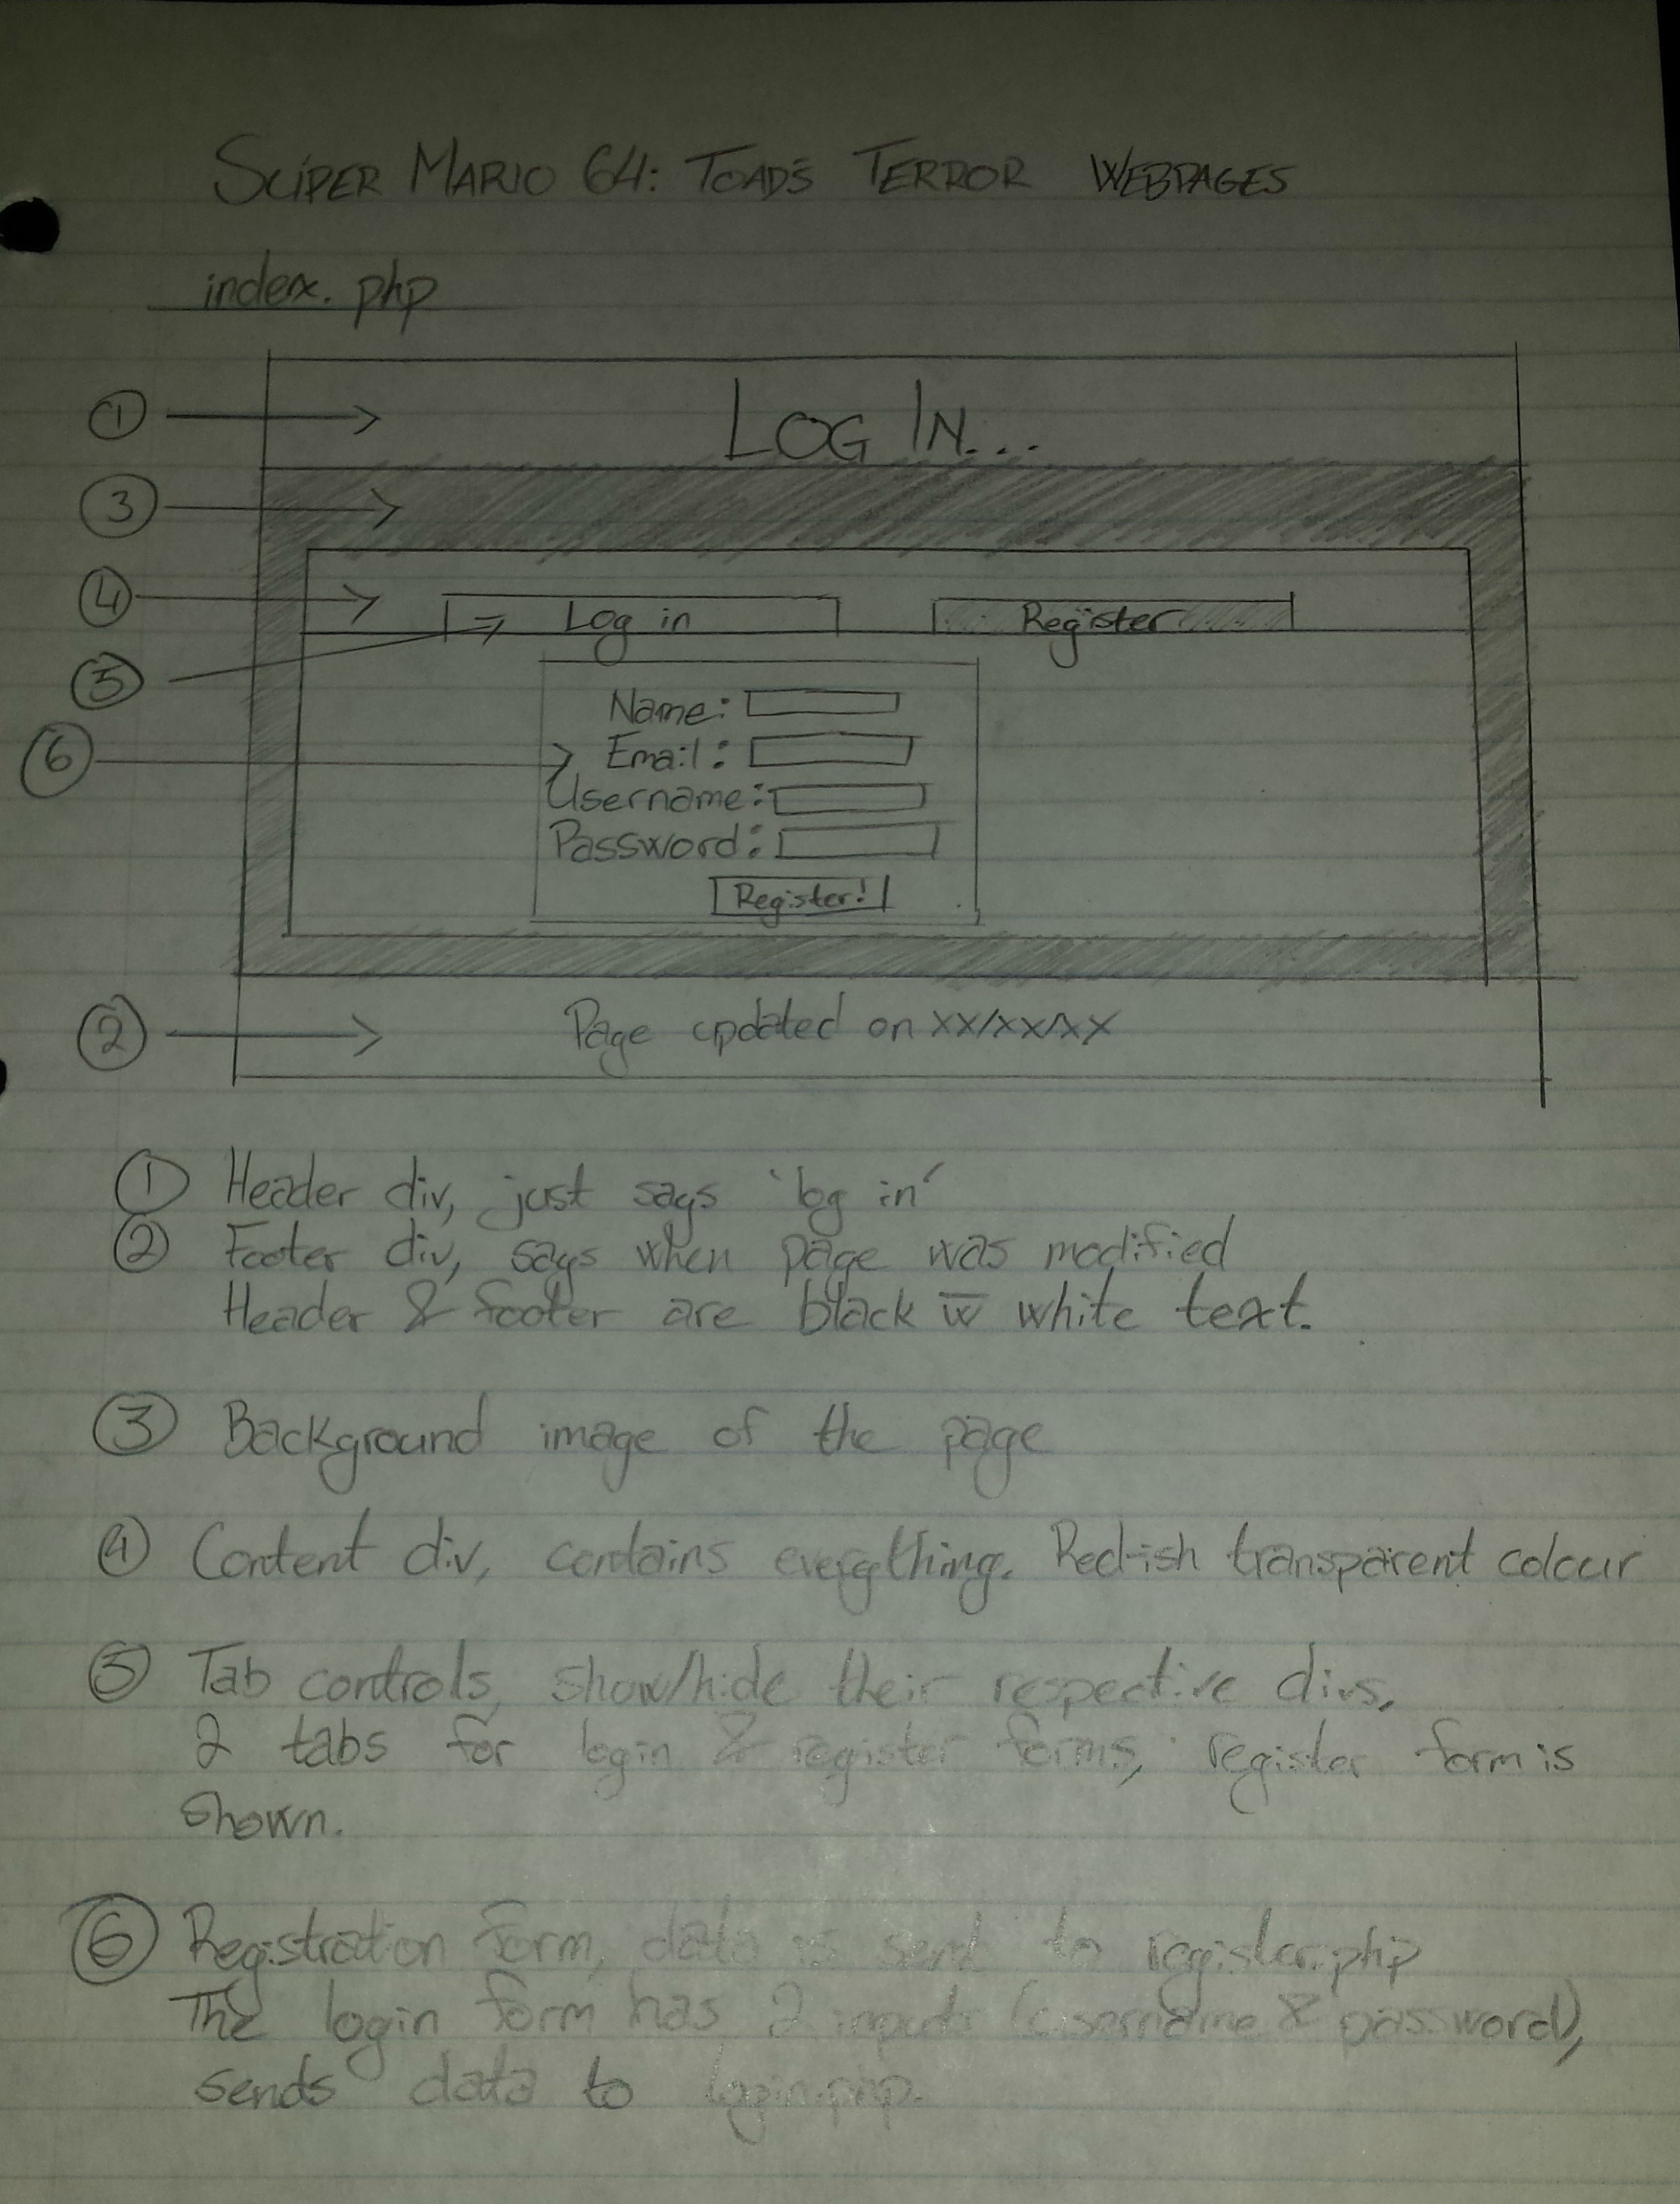 SUPER MARIO 64: TOAD'S TERROR WEBPAGES
index.php
① LOG IN...
③
④ Log in Register
⑤
Name:
⑥ Email:
Username:
Password:
Register!
② Page updated on XX/XX/XX
① Header div, just says 'log in'
② Footer div, says when page was modified
Header & footer are black w̅ white text.
③ Background image of the page
④ Content div, contains everything. Red-ish transparent colour
⑤ Tab controls, show/hide their respective divs.
2 tabs for login & register forms, register form is
shown.
⑥ Registration form, data is sent to register.php
The login form has 2 inputs (username & password),
sends data to login.php.